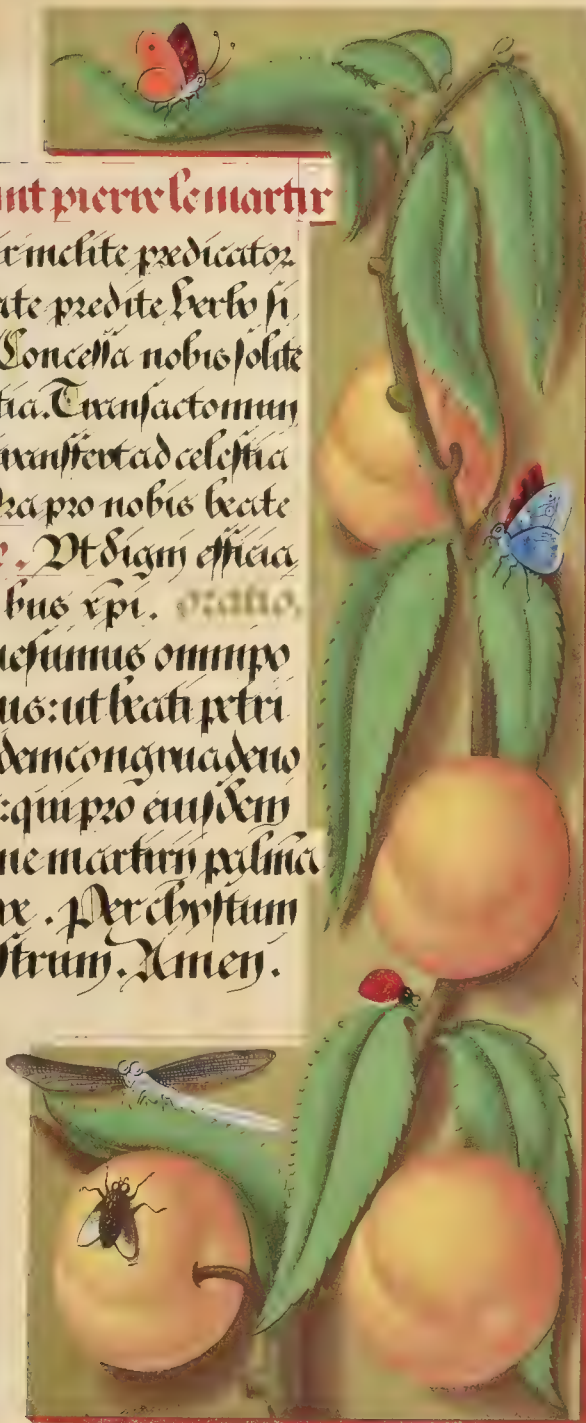 int pierre le martir
r inclite predicator
ate predite verbo si
Concessa nobis solite
tia. Transacto mun
transfert ad celestia
ra pro nobis beate
e. Ut digni efficia
bus xpi. oratio.
uesumus omnipo
us: ut beati petri
dem congrua deuo
: qui pro eiusdem
ne martirii palma
Per christum
strum. Amen.